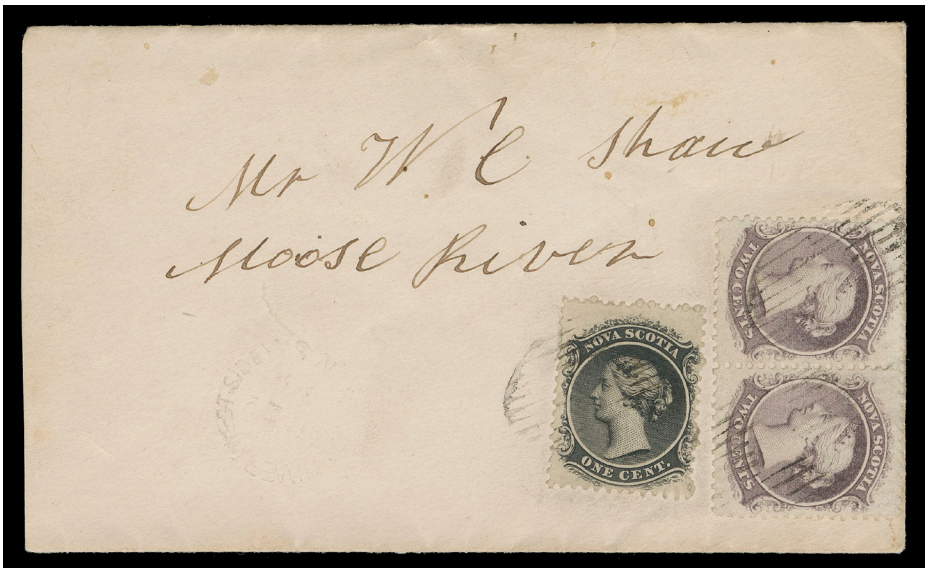 Mr W. C Shaw
Moose River
NOVA SCOTIA
ONE CENT.
NOVA SCOTIA
TWO CENTS
NOVA SCOTIA
TWO CENTS